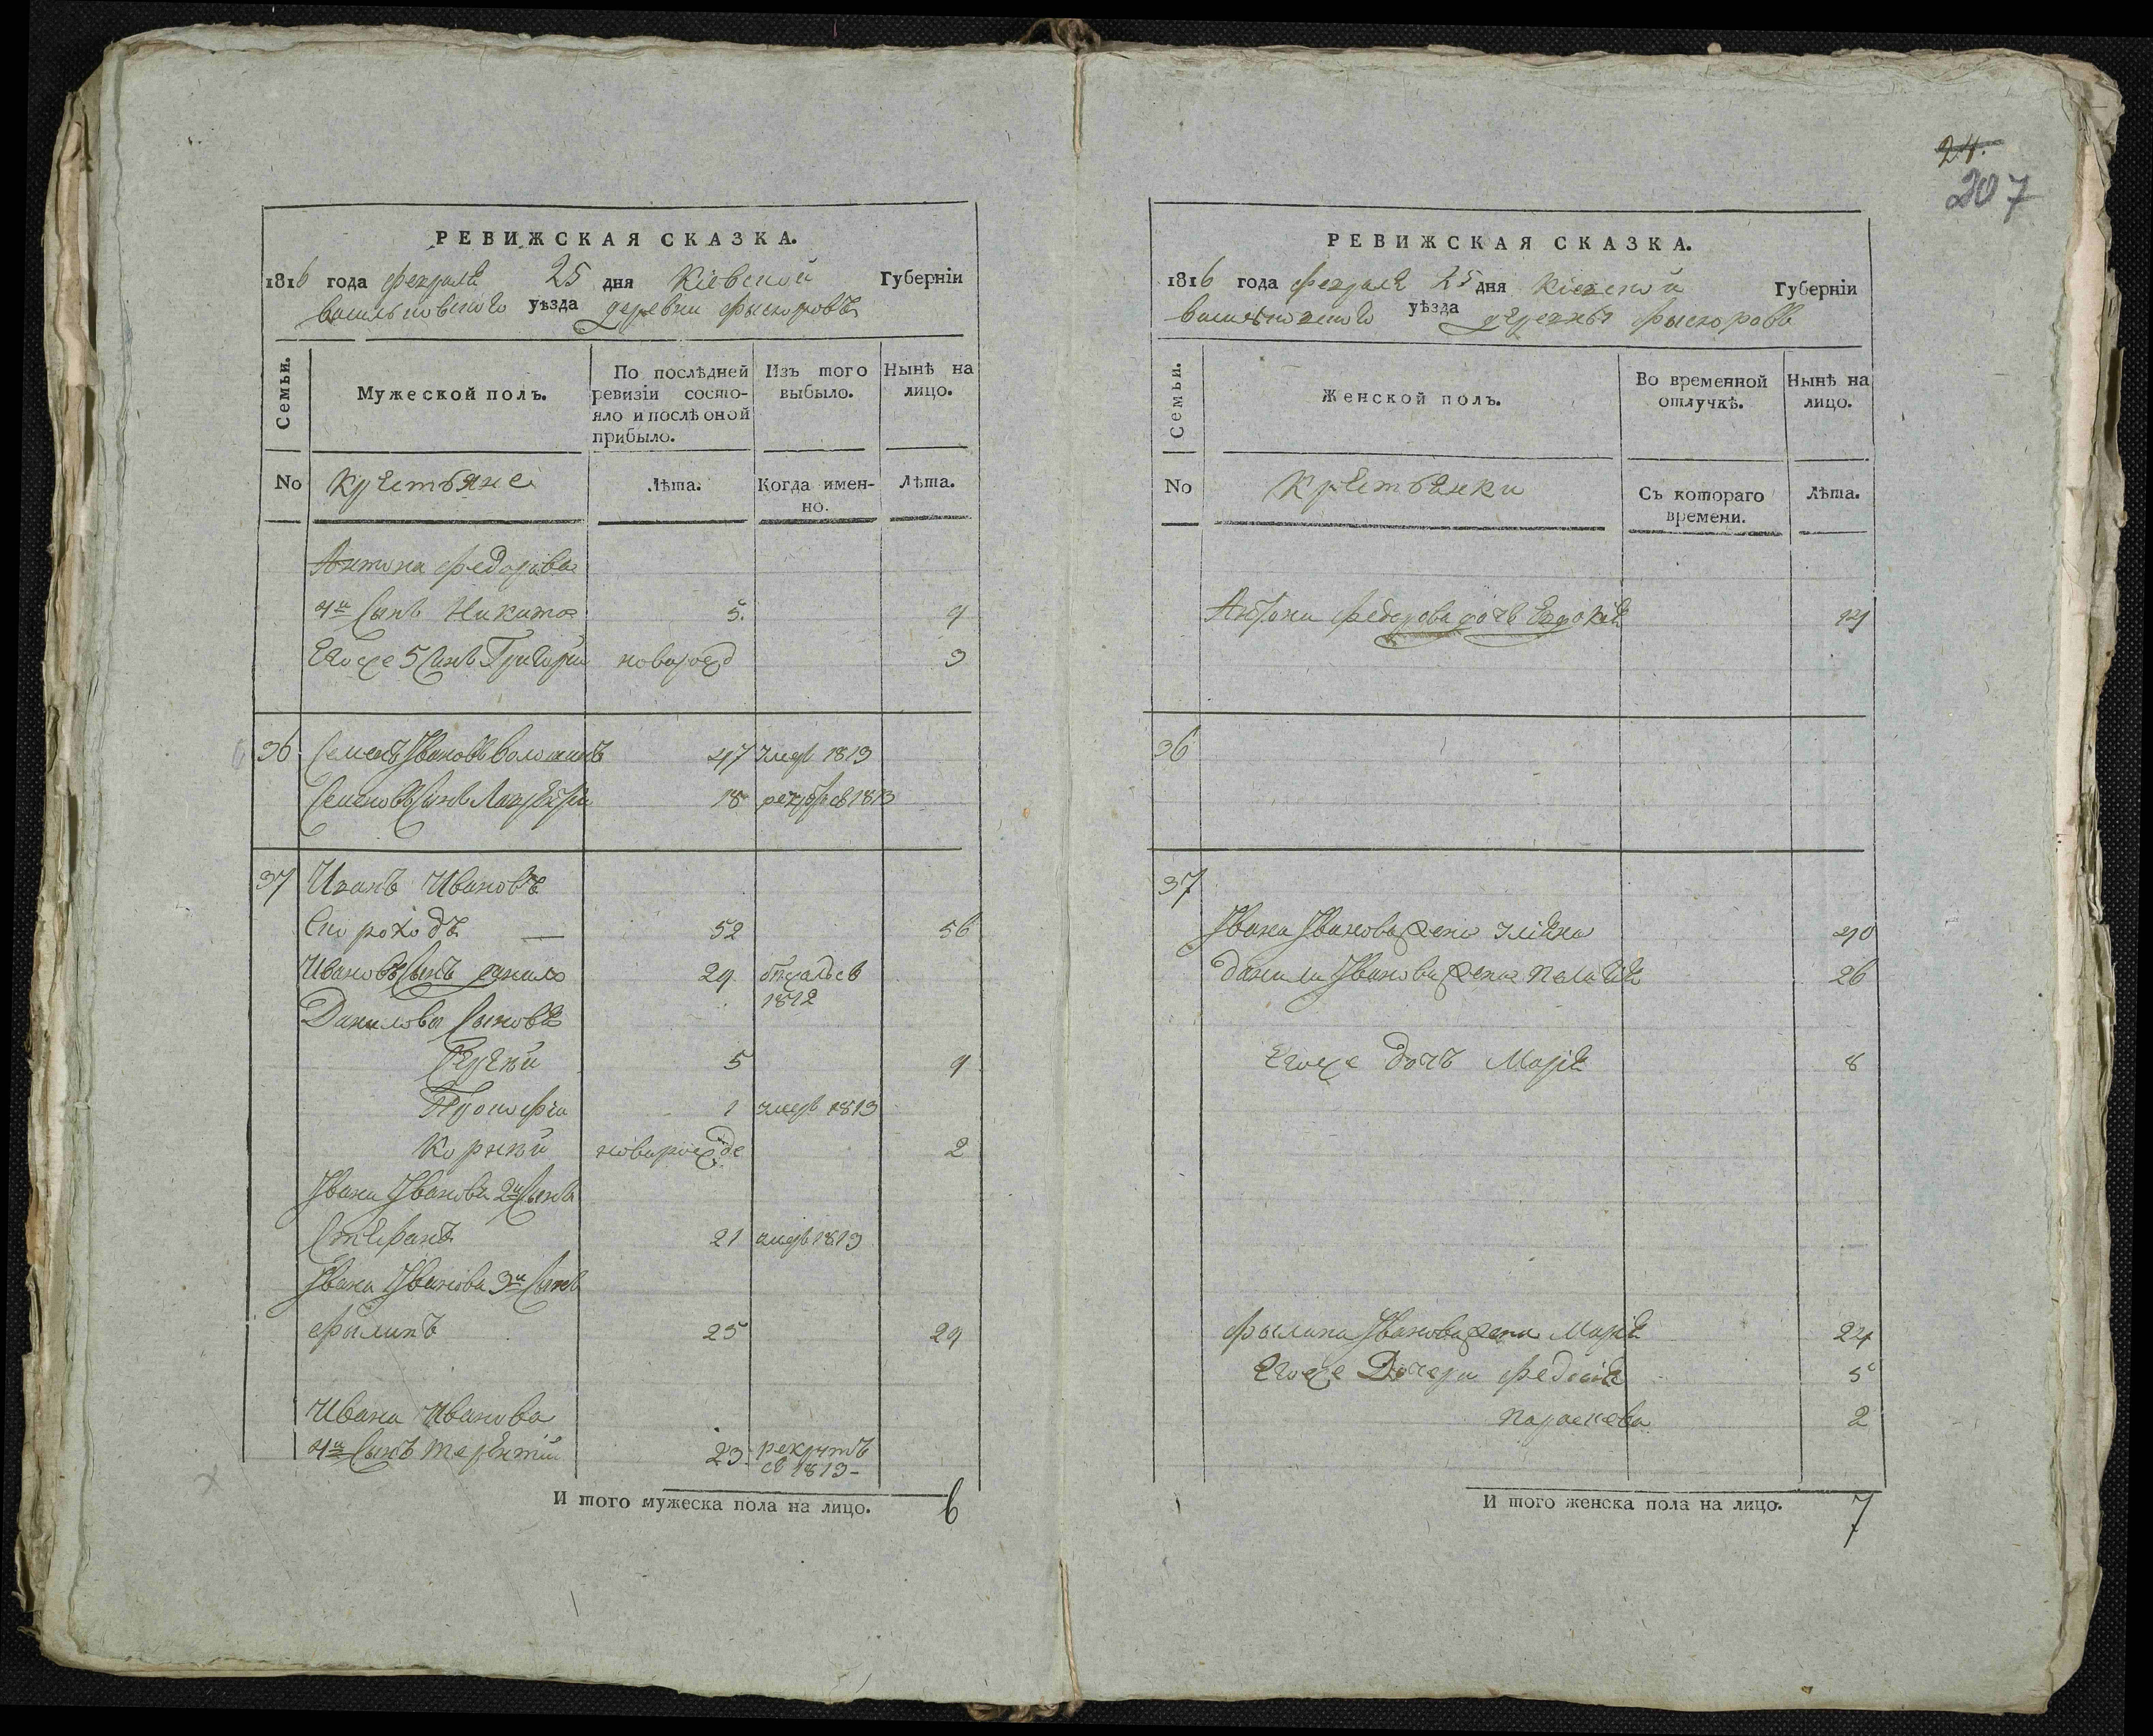 РЕВИЖСКАЯ СКАЗКА.
1816 года февраля 25 дня Кіевской Губерніи
васильковского уѣзда деревни Фыскоровъ
Семьи.
Мужеской полъ.
По послѣдней ревизіи состо-
яло и послѣ оной
прибыло.
Изъ того
выбыло.
Нынѣ на
лицо.
No
Крестьяне
Лѣта.
Когда имен-
но.
Лѣта.
Антона Федорова
4й Сынъ Никита 5. 9
Егоже 5 Сынъ Григорій новорожд 3
36 Семенъ Ивановъ 47 умеръ 1813
Семеновъ Сынъ 18 1813
37 Иванъ Ивановъ
Скороходъ 52 56
Ивановъ Сынъ Данило 29 бѣжалъ въ
1812
Даниловы Сыновья
Сергѣй 5 9
Прокофій 1 умеръ 1813
Корнѣй новорожде 2
Ивана Иванова 2й Сынъ
Стефанъ 21 умеръ 1813
Ивана Иванова 3й Сынъ
Фылипъ 25 29
Ивана Иванова
4й Сынъ Терентій 23 рекрутъ
съ 1813
И того мужеска пола на лицо. 6
24.
207
РЕВИЖСКАЯ СКАЗКА.
1816 года февраля 25 дня Кіевской Губерніи
васильковского уѣзда деревни Фыскоровъ
Семьи.
Женской полъ.
Во временной
отлучкѣ.
Нынѣ на
лицо.
No
Крестьянки
Съ котораго
времени.
Лѣта.
Антона Федорова дочь Евдокія
36
37
Ивана Иванова жена 40
Данила Иванова жена 26
Егоже Дочь Марія 8
Фылипа Иванова жена Марія 24
Егоже Дочери Федосія 5
Параскева 2
И того женска пола на лицо. 7